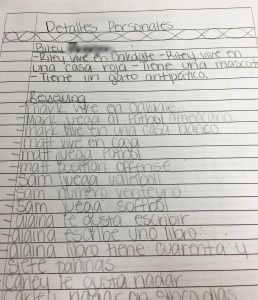 Detalles Personales
Riley
-Riley vive en Oakdale -Riley vive en
una casa roja -Tiene una mascota
-Tiene un gato antipático.
Reviewing
-mark vive en Oakdale
-Mark juega al futbol americano
-mark vive en una casa blanco
-matt vive en casa
-matt juega futbol
-matt position defense
-Sam juega volleibol
-sam numero venteuno
-Sam juega softbol
-alaina le gusta escribir
-alaina escribe uno libro.
-alaina libro tiene cuarenta y
siete paninas
-carley le gusta nadar
-carley nadar en cinco dias